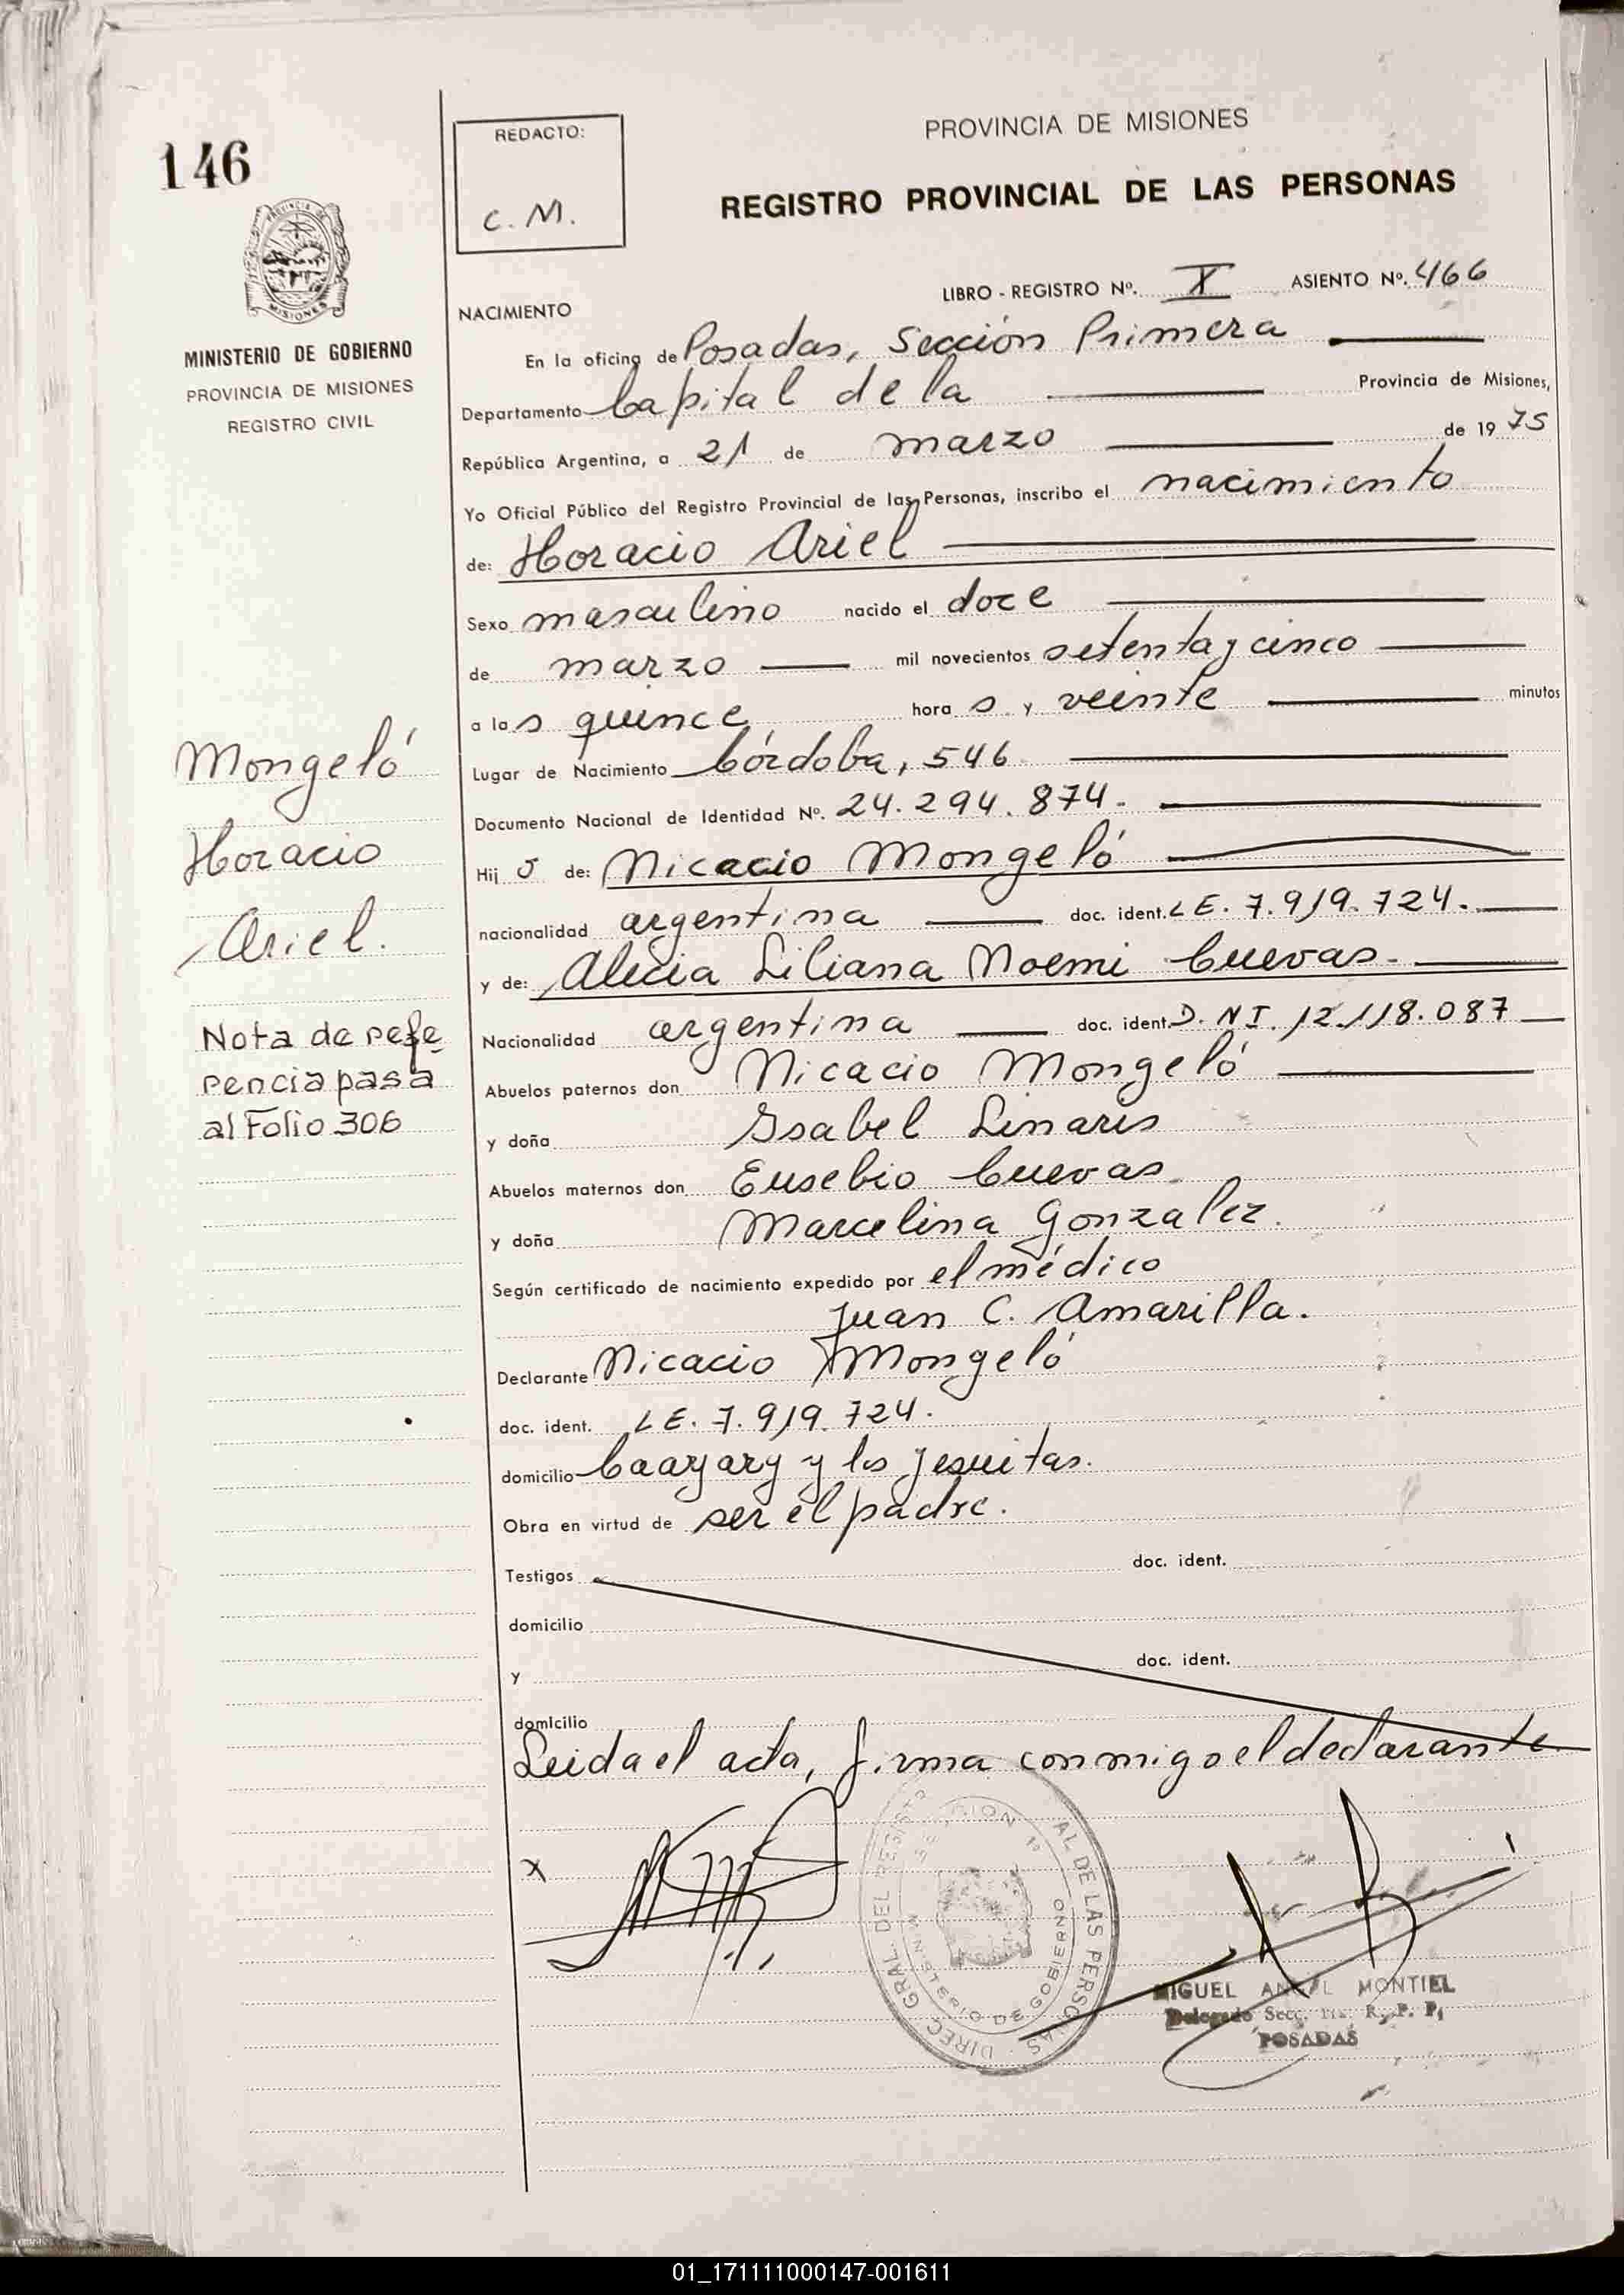 146
REDACTO:
C. M.
PROVINCIA DE MISIONES
REGISTRO PROVINCIAL DE LAS PERSONAS
MINISTERIO DE GOBIERNO
PROVINCIA DE MISIONES
REGISTRO CIVIL
LIBRO - REGISTRO Nº. I ASIENTO Nº. 466
NACIMIENTO
En la oficina de Posadas, Sección Primera
Departamento Capital de la Provincia de Misiones,
República Argentina, a 21 de marzo de 1975
Yo Oficial Público del Registro Provincial de las Personas, inscribo el nacimiento
de: Horacio Ariel
Sexo masculino nacido el doce
de marzo mil novecientos setenta y cinco
a las quince horas y veinte minutos
Lugar de Nacimiento Córdoba, 546
Documento Nacional de Identidad Nº. 24.294.874.
Hijo de: Nicacio Mongeló
nacionalidad argentina doc. ident. LE. 7.919.724.
y de: Alicia Liliana Noemi Cuevas.
Nacionalidad argentina doc. ident. D.N.I. 12.118.087
Abuelos paternos don Nicacio Mongeló
y doña Isabel Linares
Abuelos maternos don Eusebio Cuevas.
y doña Marcelina Gonzalez.
Según certificado de nacimiento expedido por el médico
Juan C. Amarilla.
Declarante Nicacio Mongeló
doc. ident. LE. 7.919.724.
domicilio Caayary y los jesuitas.
Obra en virtud de ser el padre.
Testigos doc. ident.
domicilio
y doc. ident.
domicilio
Leida el acta, firma conmigo el declarante
Mongeló
Horacio
Ariel.
Nota de refe
rencia pasa
al Folio 306
x
DIREC. GRAL. DEL REGISTRO AL DE LAS PERSONAS
MINISTERIO DE GOBIERNO
MIGUEL ANGEL MONTIEL
Delegado Secc. 1ra. R. P. P.
POSADAS
01_171111000147-001611